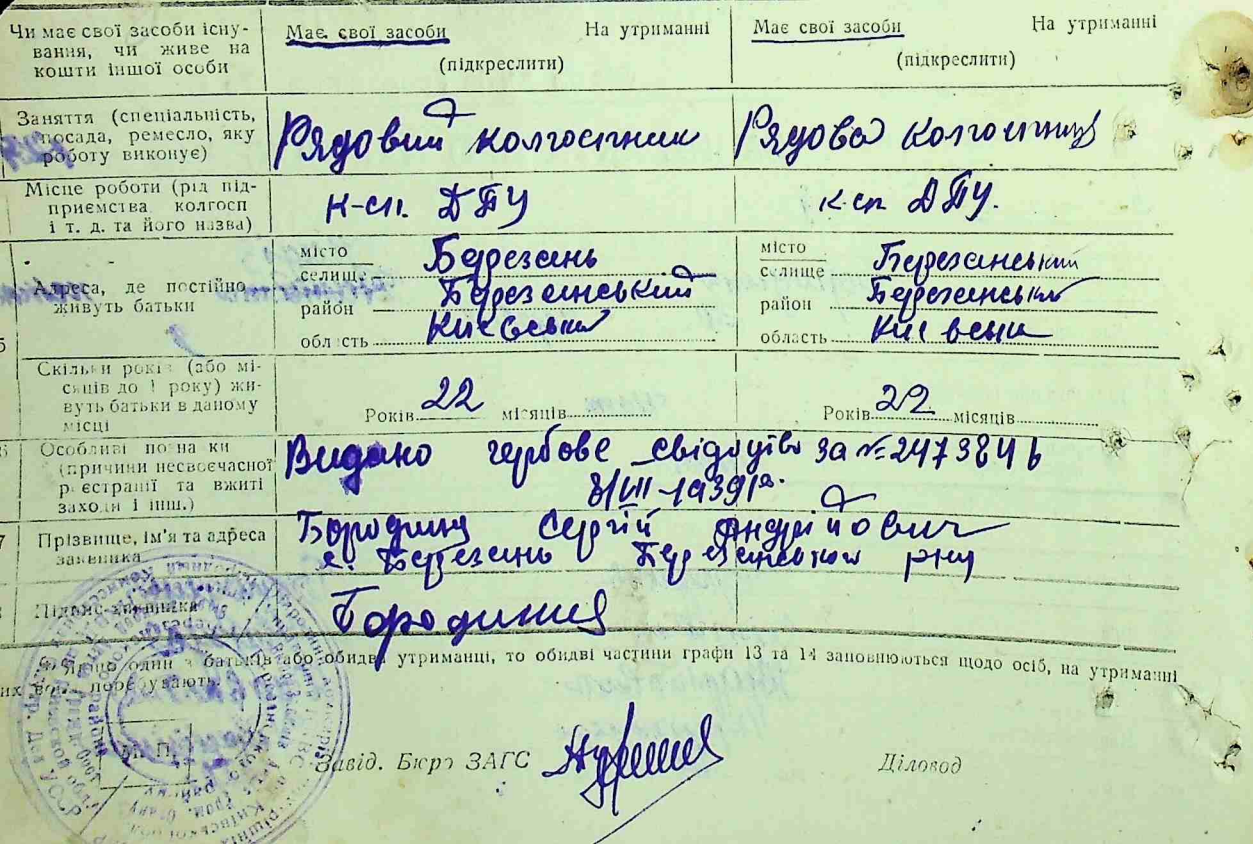 Чи має свої засоби існу-
вання, чи живе на
кошти іншої особи
Має свої засоби На утриманні
(підкреслити)
Має свої засоби На утриманні
(підкреслити)
Заняття (спеціальність,
посада, ремесло, яку
роботу виконує)
Рядовий колгоспник
Рядова колгоспниця
Місце роботи (рід під-
приємства колгосп
і т. д. та його назва)
к-сп. ДПУ
к-сп ДПУ.
Адреса, де постійно
живуть батьки
місто
селище Березань
район Березанський
область Київська
місто
селище Березанський
район Березанський
область Київськ
Скільки років (або мі-
сяців до 1 року) жи-
вуть батьки в даному
місці
Років 22 місяців
Років 22 місяців
Особливі познаки
(причини несвоєчасної
реєстрації та вжиті
заходи і інш.)
Видано гербове свідоцтво за №
8/VII-1939 р.
7 Прізвище, ім'я та адреса
заявника
Бородина Сергій Андрійович
с. Березань Березанського р-ну
Підпис заявника
Бородина
Якщо один з батьків або обидва утриманці, то обидві частини графи 13 та 14 заповнюються щодо осіб, на утриманні
них вони перебувають.
М. П.
Завід. Бюро ЗАГС
Діловод